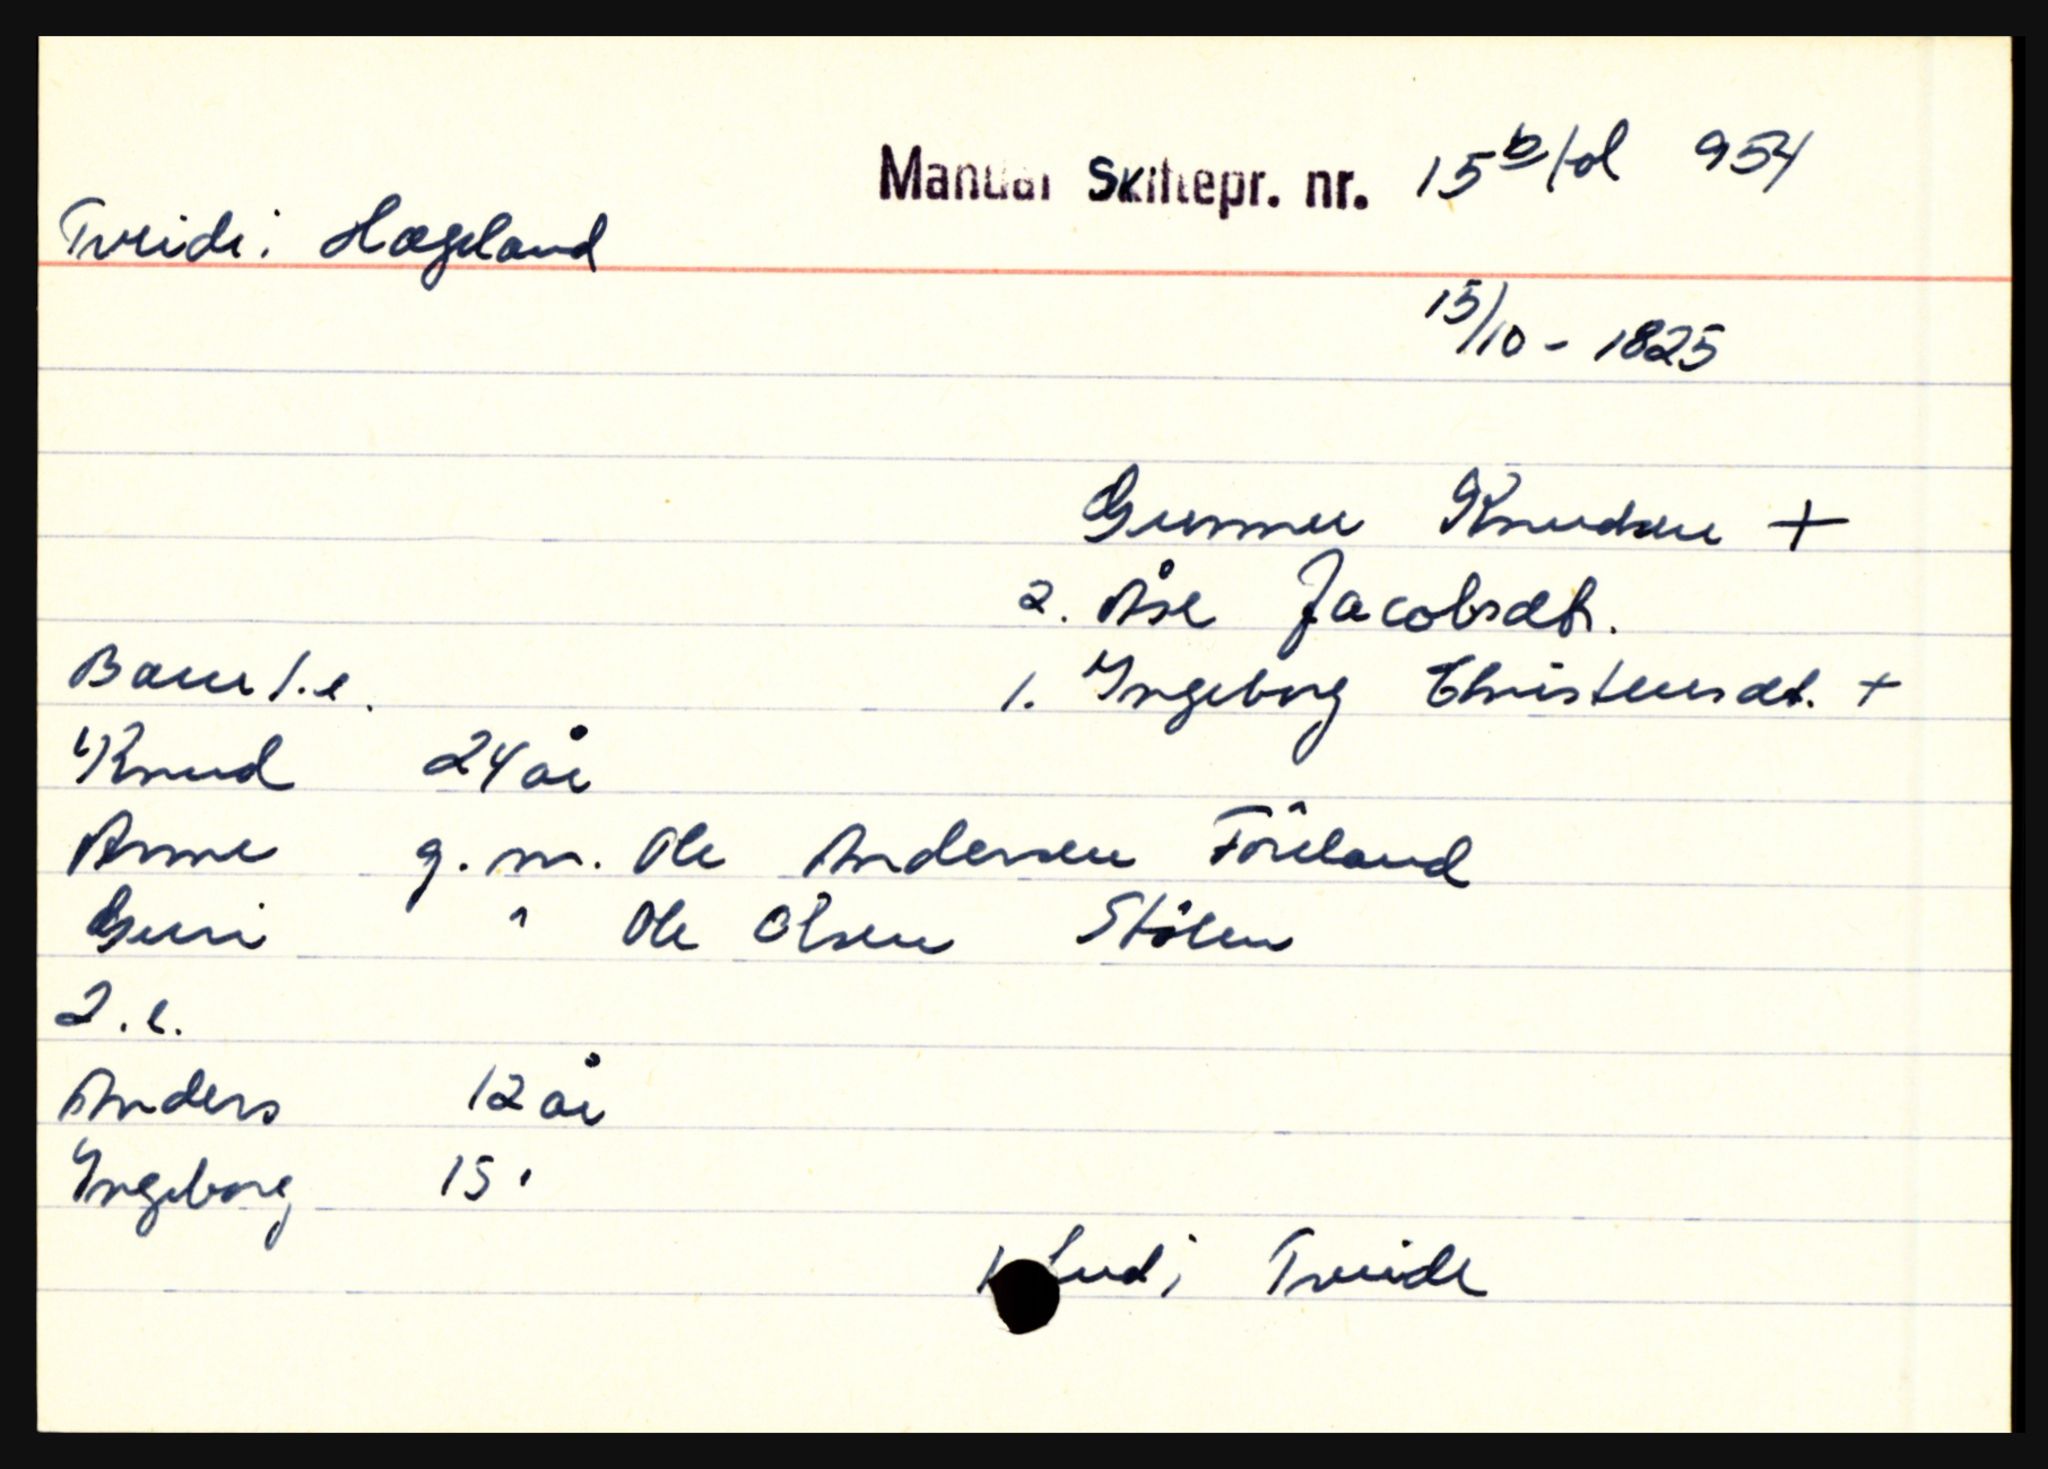 Manual Skiftepr. nr. 15b fol 954
Tveide i Hægeland
15/10 - 1825
Gunner Knudsen +
2. Åse Jacobsdt.
Barn 1.e. 1. Yngeborg Christensdt. +
Knud 24 år
Anne g. m. Ole Andersen Føreland
Guri " Ole Olsen Stølen
2.e.
Anders 12 år
Yngeborg 15 "
i Tveide